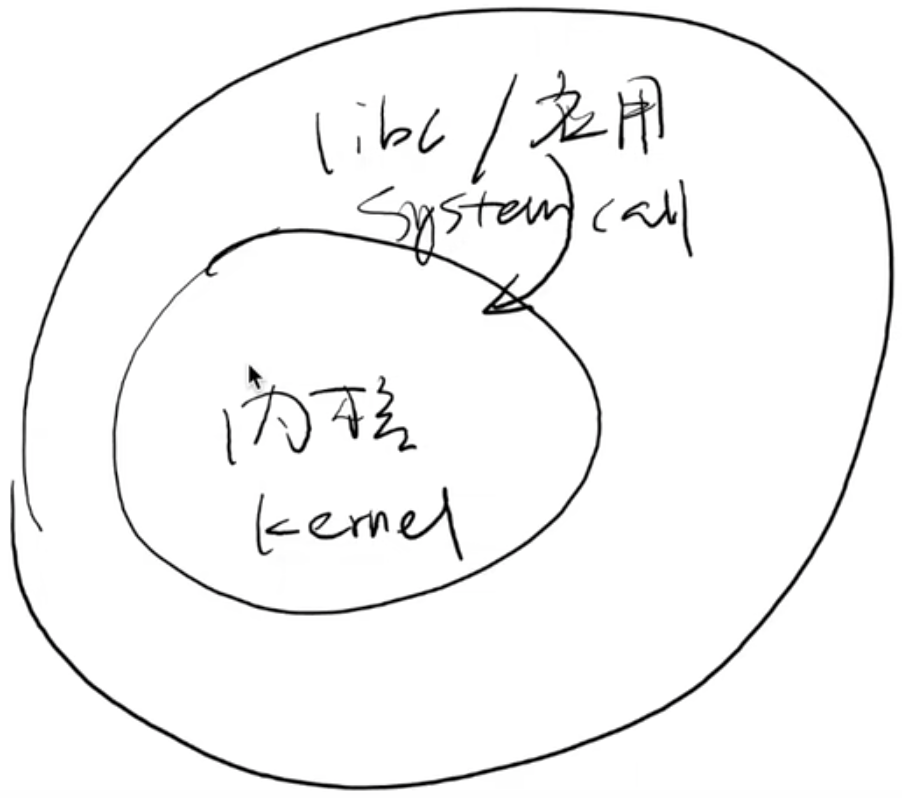 libc / 应用
system call
内核
kernel